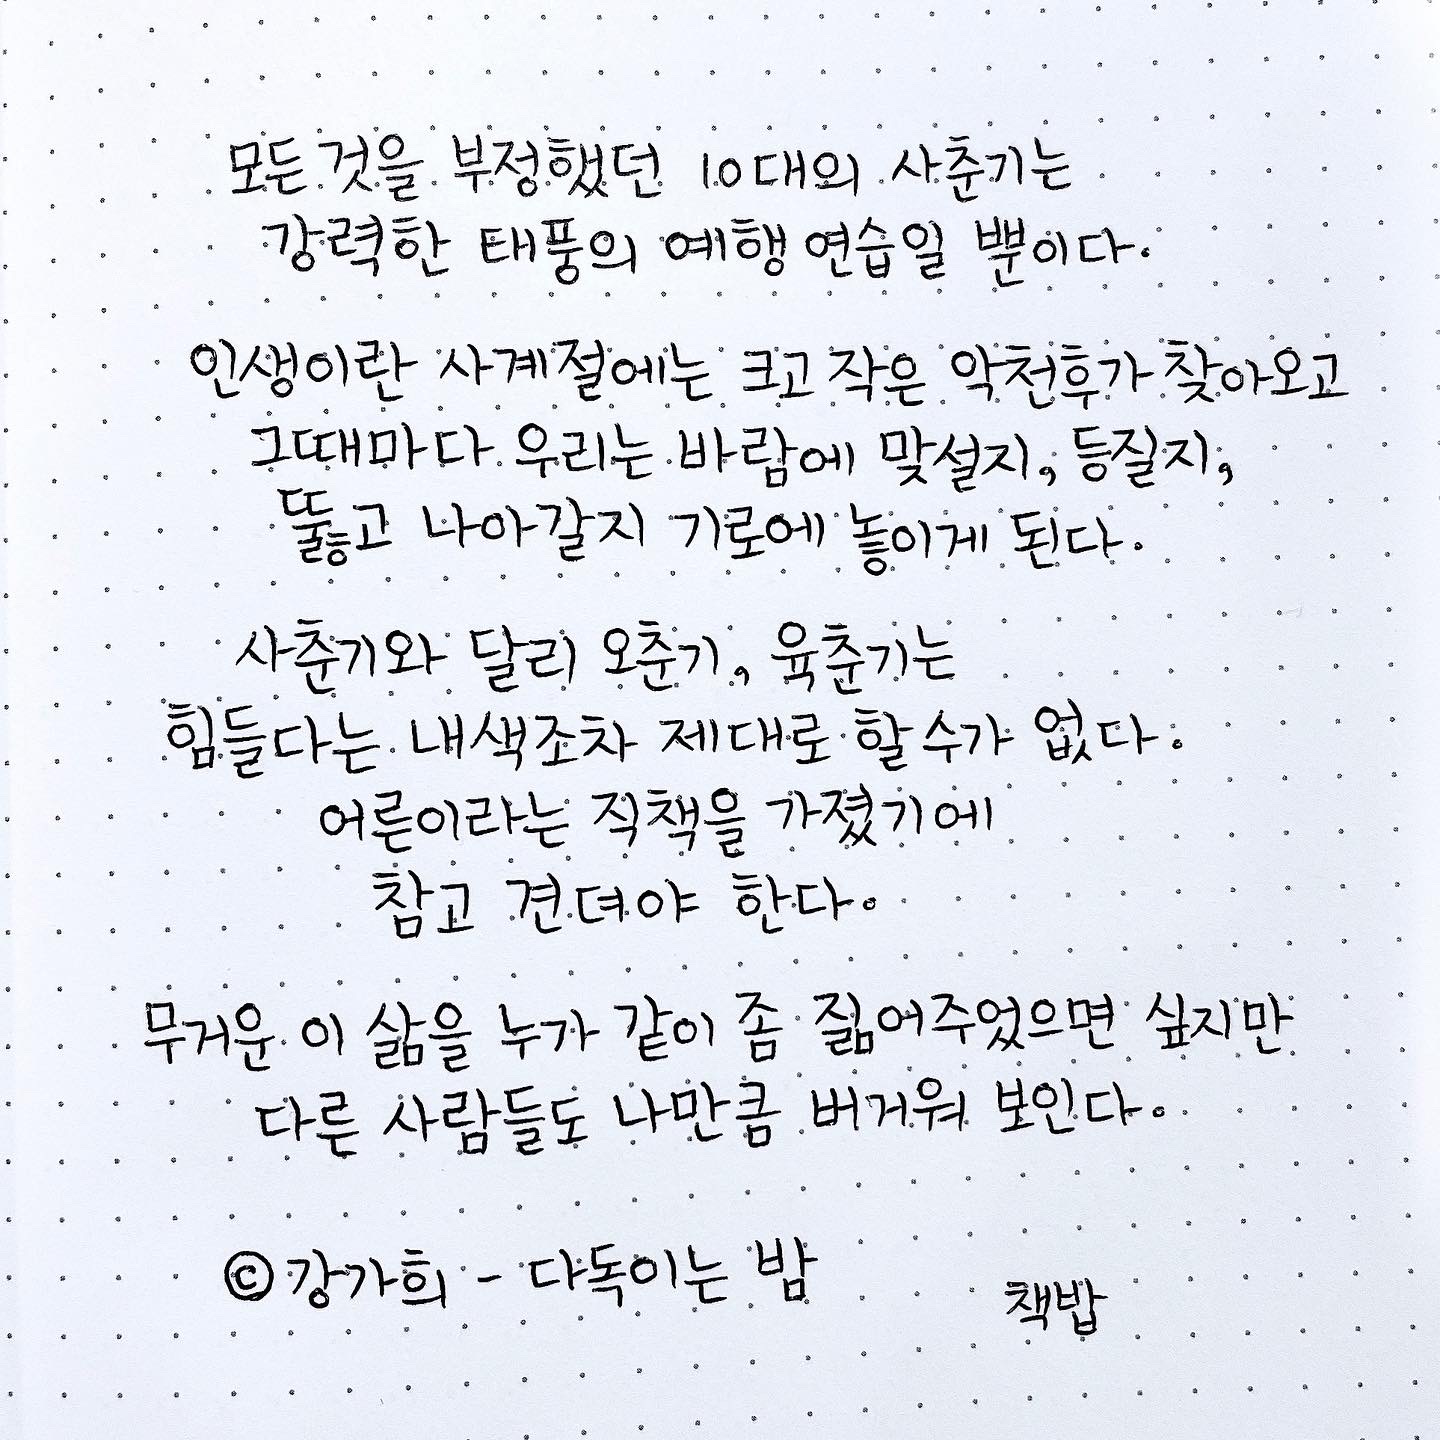 모든 것을 부정했던 10대의 사춘기는
강력한 태풍의 예행연습일 뿐이다.
인생이란 사계절에는 크고 작은 악천후가 찾아오고
그때마다 우리는 바람에 맞설지, 등질지,
뚫고 나아갈지 기로에 놓이게 된다.
사춘기와 달리 오춘기, 육춘기는
힘들다는 내색조차 제대로 할 수가 없다.
어른이라는 직책을 가졌기에
참고 견뎌야 한다.
무거운 이 삶을 누가 같이 좀 짊어주었으면 싶지만
다른 사람들도 나만큼 버거워 보인다.
©강가희 - 다독이는 밤
책밥